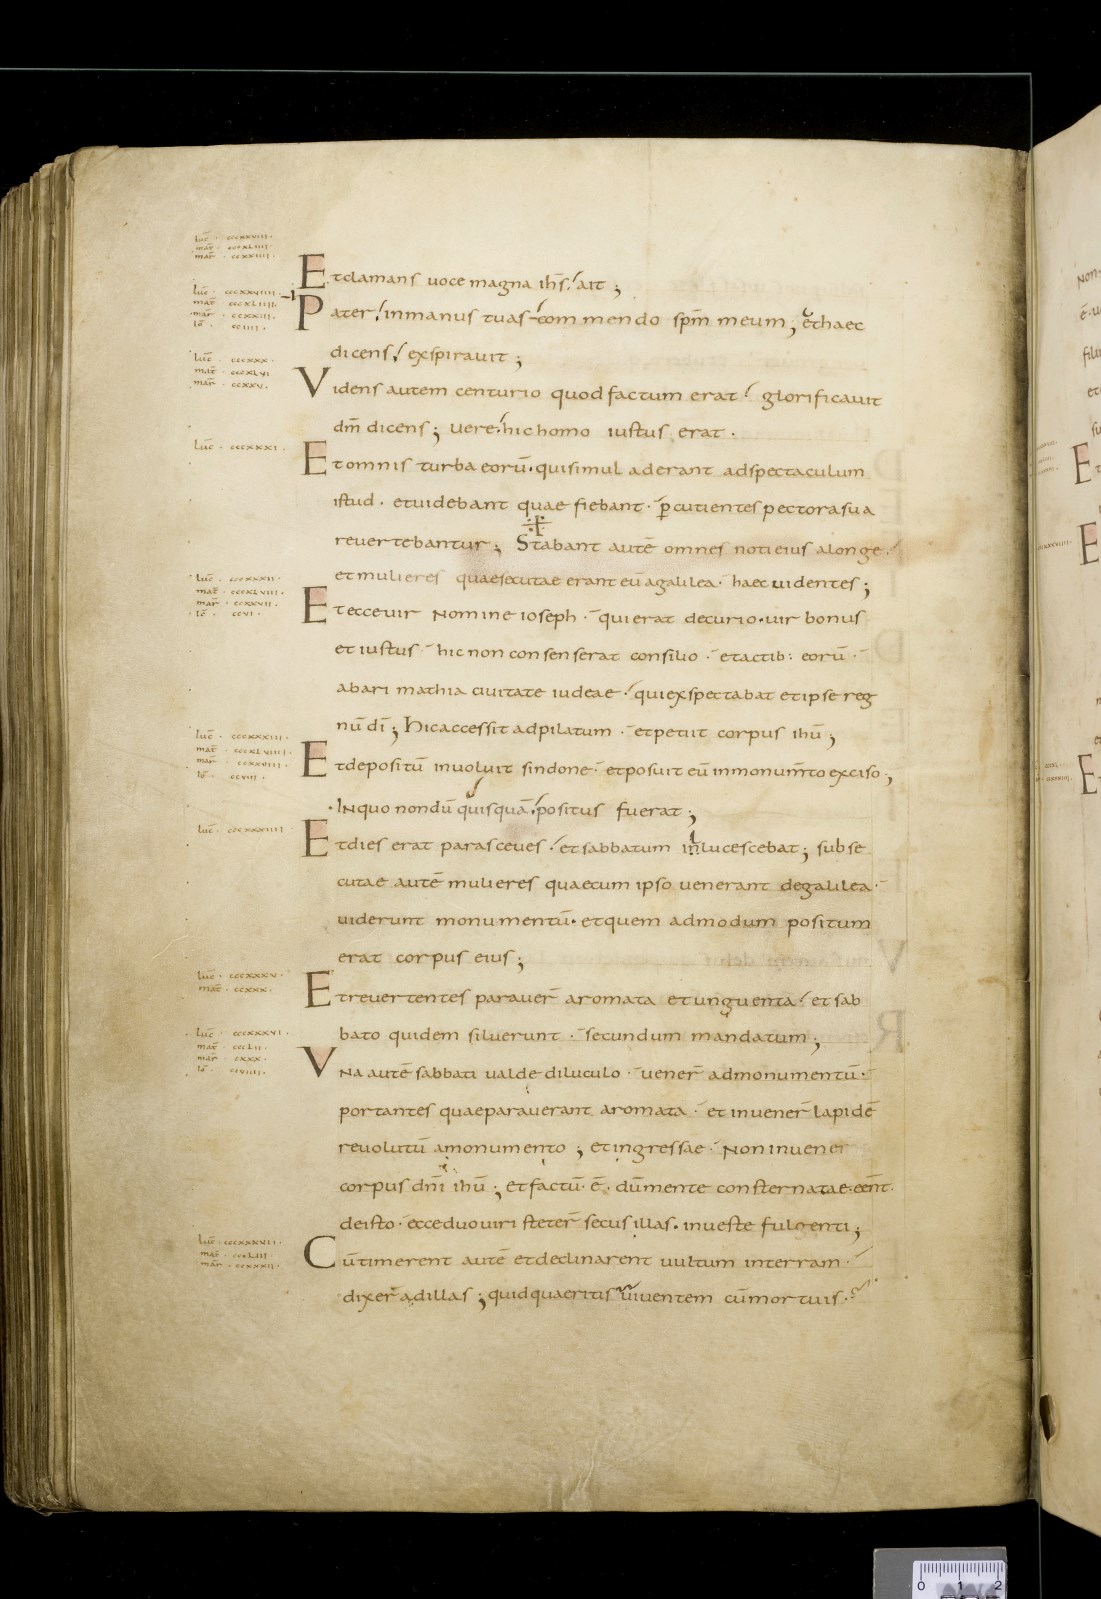 luc̄ · cccxxviiii ·
mat̄ · cccxliiii ·
mar̄ · ccxxiiii ·
Et clamans uoce magna ih̄s · ait ;
luc̄ · cccxxviiii ·
mat̄ · cccxliiii ·
mar̄ · ccxxiiii ·
io̅ · cciiii ·
Pater · in manus tuas com mendo sp̄m meum ; et haec
dicens · exspirauit ;
luc̄ · cccxxx ·
mat̄ · cccxlvi
mar̄ · ccxxv ·
Videns autem centurio quod factum erat · glorificauit
dm̄ dicens ; uere · hic homo iustus erat ·
luc̄ · cccxxxi ·
Et omnis turba eorū · qui simul aderant ad spectaculum
istud · et uidebant quae fiebant · ꝑcutientes pectora sua
reuertebantur ; Stabant autē omnes noti eius a longe ·
et mulieres quae secutae erant eū a galilea · haec uidentes ;
luc̄ · cccxxxii ·
mat̄ · cccxlviii ·
mar̄ · ccxxvii ·
io̅ · ccvi ·
Et ecce uir Nomine ioseph · qui erat decurio · uir bonus
et iustus · hic non con sen serat consilio · et actib: eorū ·
ab ari mathia ciuitate iudeae · qui exspectabat et ipse reg
nū dī ; Hic accessit ad pilatum · et petiit corpus ihū ;
luc̄ · cccxxxiii ·
mat̄ · cccxlviiii ·
mar̄ · ccxxviii ·
io̅ · ccviii ·
Et depositū inuoluit sindone · et posuit eū in monum̄to exciso ;
· In quo nondū quisquā · positus fuerat ;
luc̄ · cccxxxiiii
Et dies erat parasceues · et sabbatum inlucescebat ; subse
cutae autē mulieres quae cum ipso uenerant de galilea ·
uiderunt monumentū · et quem admodum positum
erat corpus eius ;
luc̄ · cccxxxv ·
mat̄ · ccxxx ·
Et reuertentes parauer̄ aromata et unguenta · et sab
bato quidem siluerunt · secundum mandatum ;
luc̄ · cccxxxvi ·
mat̄ · ccclii ·
mar̄ · cxxx ·
io̅ · ccviiii ·
VNa autē sabbati ualde diluculo · uener̄ ad monumentū ·
portantes quae parauerant aromata · et inuener̄ lapidē
reuolutū a monumento ; et ingressae · Non inuener
corpus dn̄i ihū ; et factū · ē · dū mente consternatae · eēnt ·
de isto · ecce duo uiri steter̄ secus illas · in ueste fulgenti ;
luc̄ · cccxxxvii ·
mat̄ · cccliii ·
mar̄ · ccxxxii ·
Cū timerent autē et declinarent uultum in terram ·
dixer̄ ad illas ; quid quaeritis uiuentem cū mortuis ·